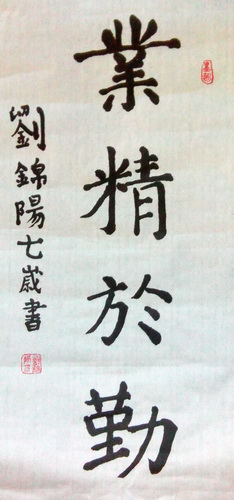 業精於勤
劉錦陽七歲書